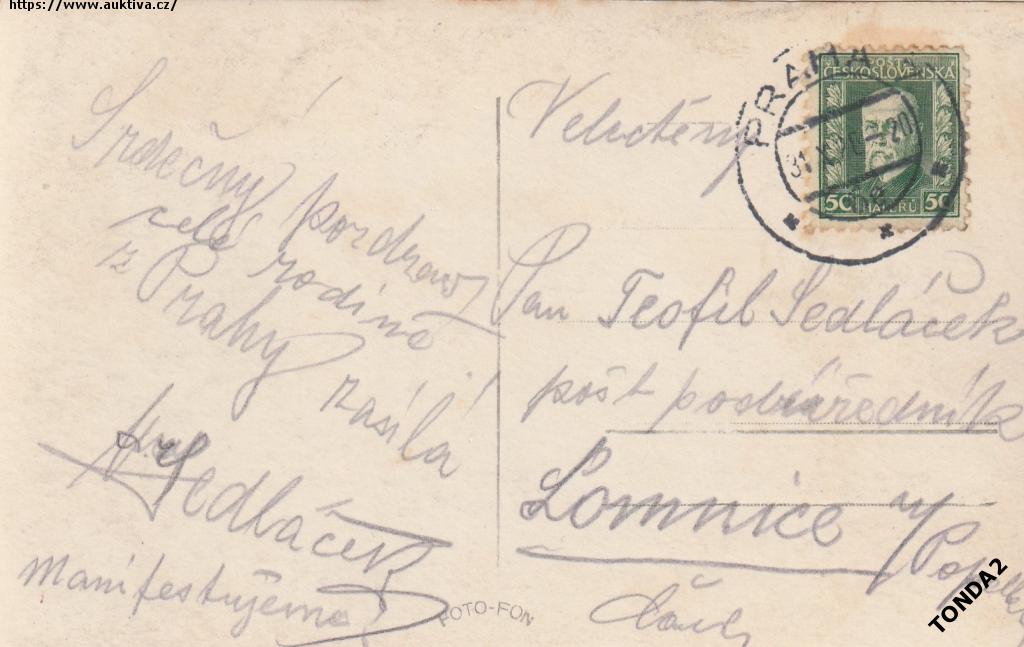 https://www.auktiva.cz/
Srdečný pozdrav
celé rodině
z Prahy zasílá
Sedláček
manifestujeme
Velectěný
Pan Teofil Sedláček
pošt podúředník
Lomnice n/
Popelkou
Čechy
PRAHA
31
20
POŠTA
ČESKOSLOVENSKÁ
50 HALÉŘŮ 50
FOTO-FON
TONDA2